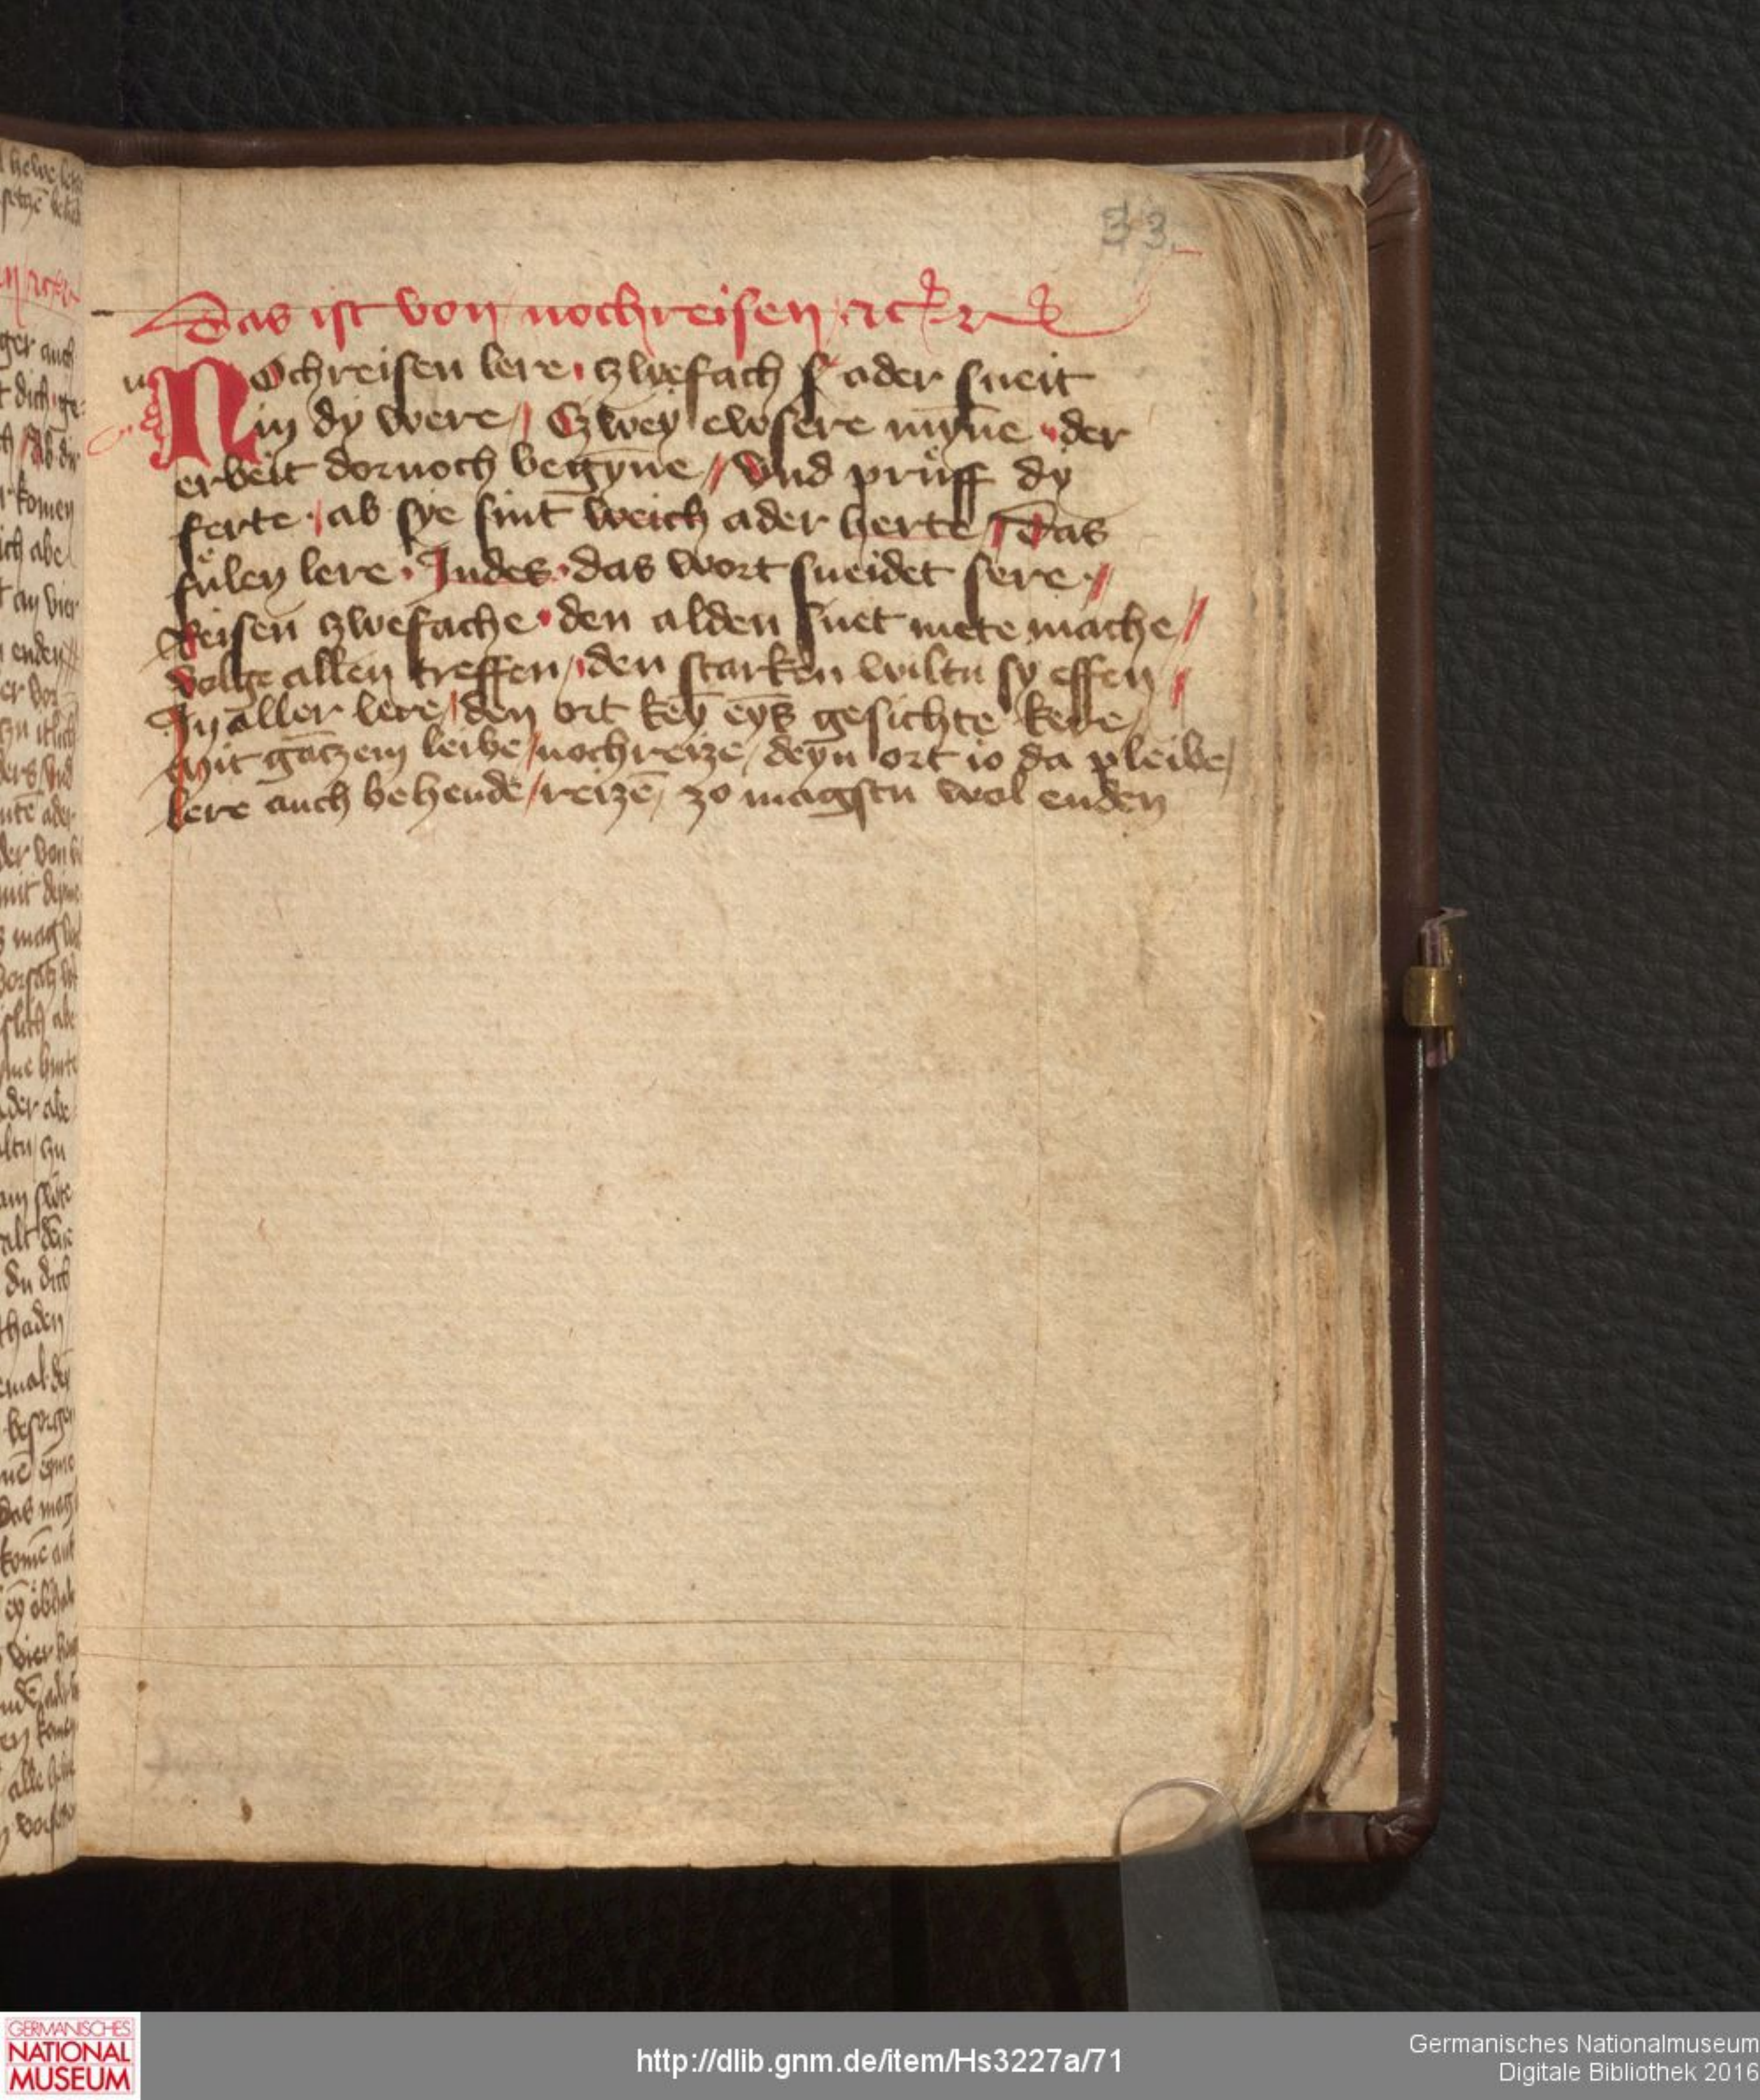 33
Das ist von nochreisen / ꝛc
NOchreisen lere · czwefach ſ ader sneit
in dy were / Czwey ewsere mȳne · der
erbeit dornoch begȳne // Vnd pruͤff dy
ferte · / ab sye sint weich ader herte / Das
fuͤlen lere · Indes · das wort sneidet sere · //
Reisen czwefache · den alden snet mete mache //
volge allen treffen / den starken wiltu sy effen //
In aller lere / den ort keȳ eȳs gesichte kere /
Mit gāczem leibe / nochreize / deyn ort io da pleibe /
lere auch behende / reizē / zo magstu wol enden
GERMANISCHES
NATIONAL
MUSEUM
http://dlib.gnm.de/item/Hs3227a/71
Germanisches Nationalmuseum
Digitale Bibliothek 2016